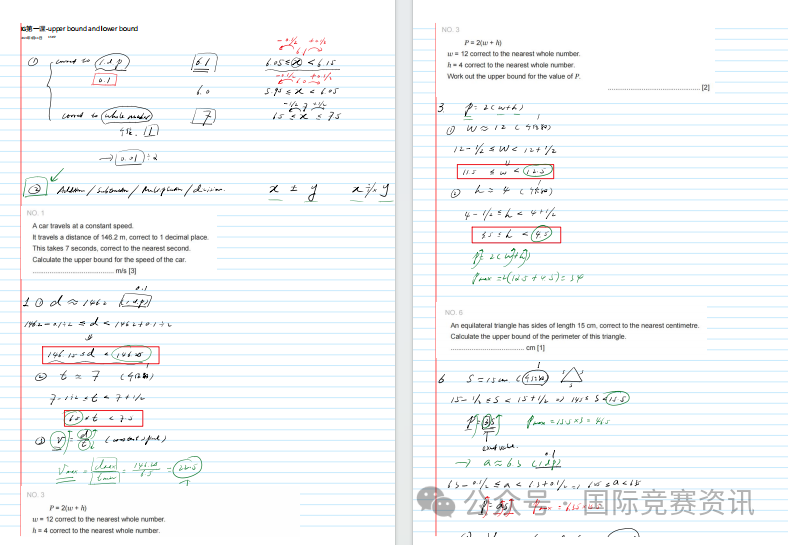 IG第一课-upper bound and lower bound
-0.1/2 +0.1/2
① correct to 1.d.p 6.1 6.05 ≤ x < 6.15
0.1
6.0 5.95 ≤ x < 6.05
correct to whole number 7 6.5 ≤ x ≤ 7.5
→ 0.01 ÷2
② Addition / Subtraction / Multiplication / division. x ± y x ÷/× y
NO. 1
A car travels at a constant speed.
It travels a distance of 146.2 m, correct to 1 decimal place.
This takes 7 seconds, correct to the nearest second.
Calculate the upper bound for the speed of the car.
m/s [3]
0.1
1 ① d ≈ 146.2 (1.d.p)
146.2-0.1÷2 ≤ d < 146.2+0.1÷2
146.15 ≤ d < 146.25
② t ≈ 7
7-1÷2 ≤ t < 7+1/2
6.5 ≤ t < 7.5
③ V = d/t (constant speed)
Vmax = dmax/tmin = 146.25/6.5 = 22.5
NO. 3
P = 2(w + h)
w = 12 correct to the nearest whole number.
h = 4 correct to the nearest whole number.
NO. 3
P = 2(w + h)
w = 12 correct to the nearest whole number.
h = 4 correct to the nearest whole number.
Work out the upper bound for the value of P.
[2]
3 P = 2(w+h)
① W ≈ 12
12-1/2 ≤ W < 12+1/2
11.5 ≤ w < 12.5
② h ≈ 4
4-1/2 ≤ h < 4+1/2
3.5 ≤ h < 4.5
P = 2(w+h)
Pmax = 2(12.5+4.5) = 34
NO. 6
An equilateral triangle has sides of length 15 cm, correct to the nearest centimetre.
Calculate the upper bound of the perimeter of this triangle.
cm [1]
6 S = 15cm
15-1/2 ≤ S < 15+1/2 ⇒ 14.5 ≤ S < 15.5
P = 3S Pmax = 15.5×3 = 46.5
exact value.
0.1
→ a ≈ 6.3 (1.d.p)
公众号 · 国际竞赛资讯